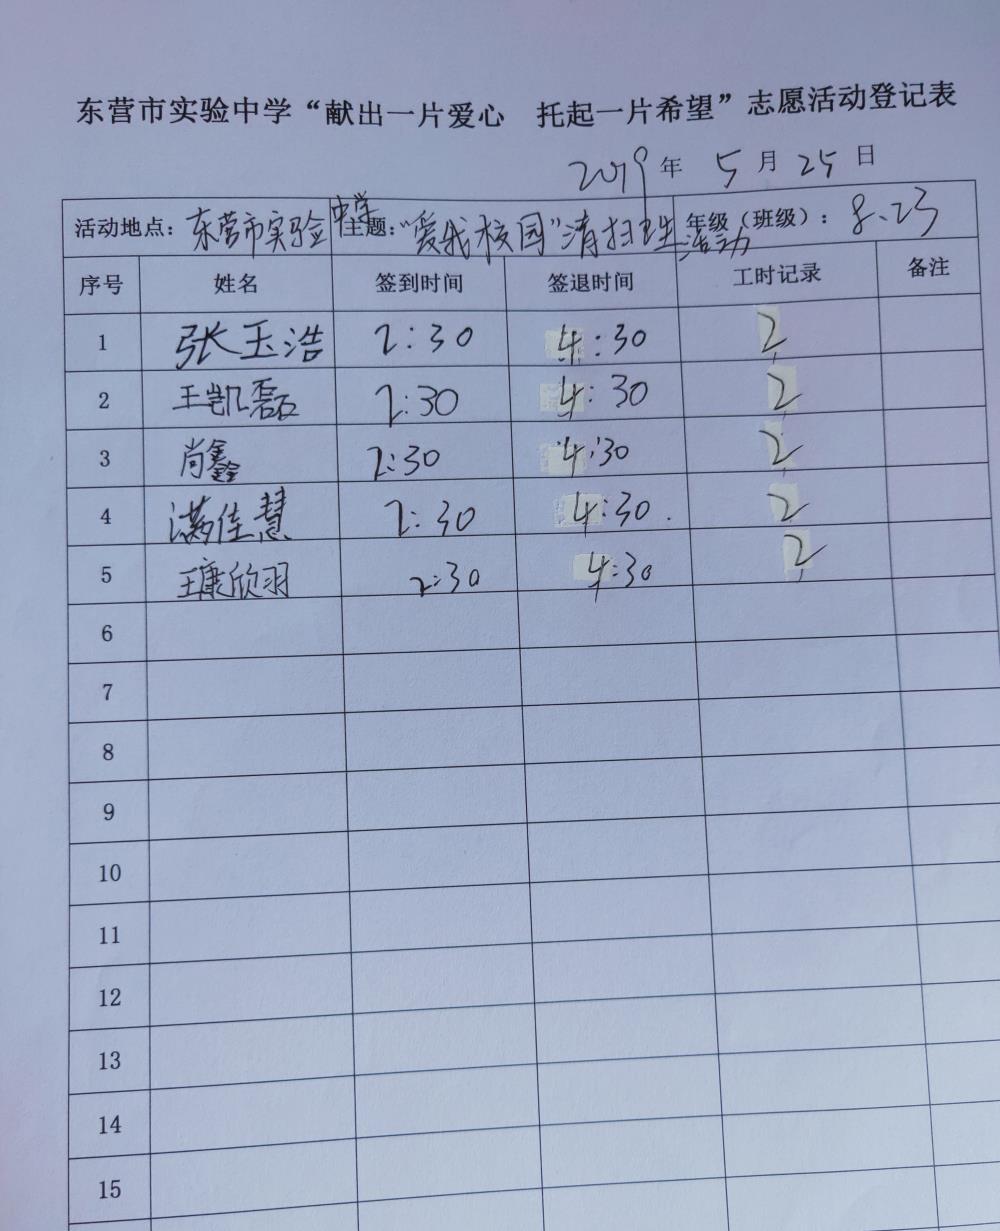 东营市实验中学“献出一片爱心 托起一片希望”志愿活动登记表
2019年 5月 25日
活动地点：东营市实验中学 主题：“爱我校园”清扫整理活动 年级（班级）：8.23
序号 姓名 签到时间 签退时间 工时记录 备注
1 张玉浩 2:30 4:30 2
2 王凯磊 2:30 4:30 2
3 尚鑫鑫 2:30 4:30 2
4 满佳慧 2:30 4:30 2
5 王康欣羽 2:30 4:30 2
6
7
8
9
10
11
12
13
14
15